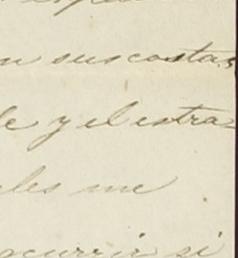 n sus costas
le y el estra-
les me
ocurrir si